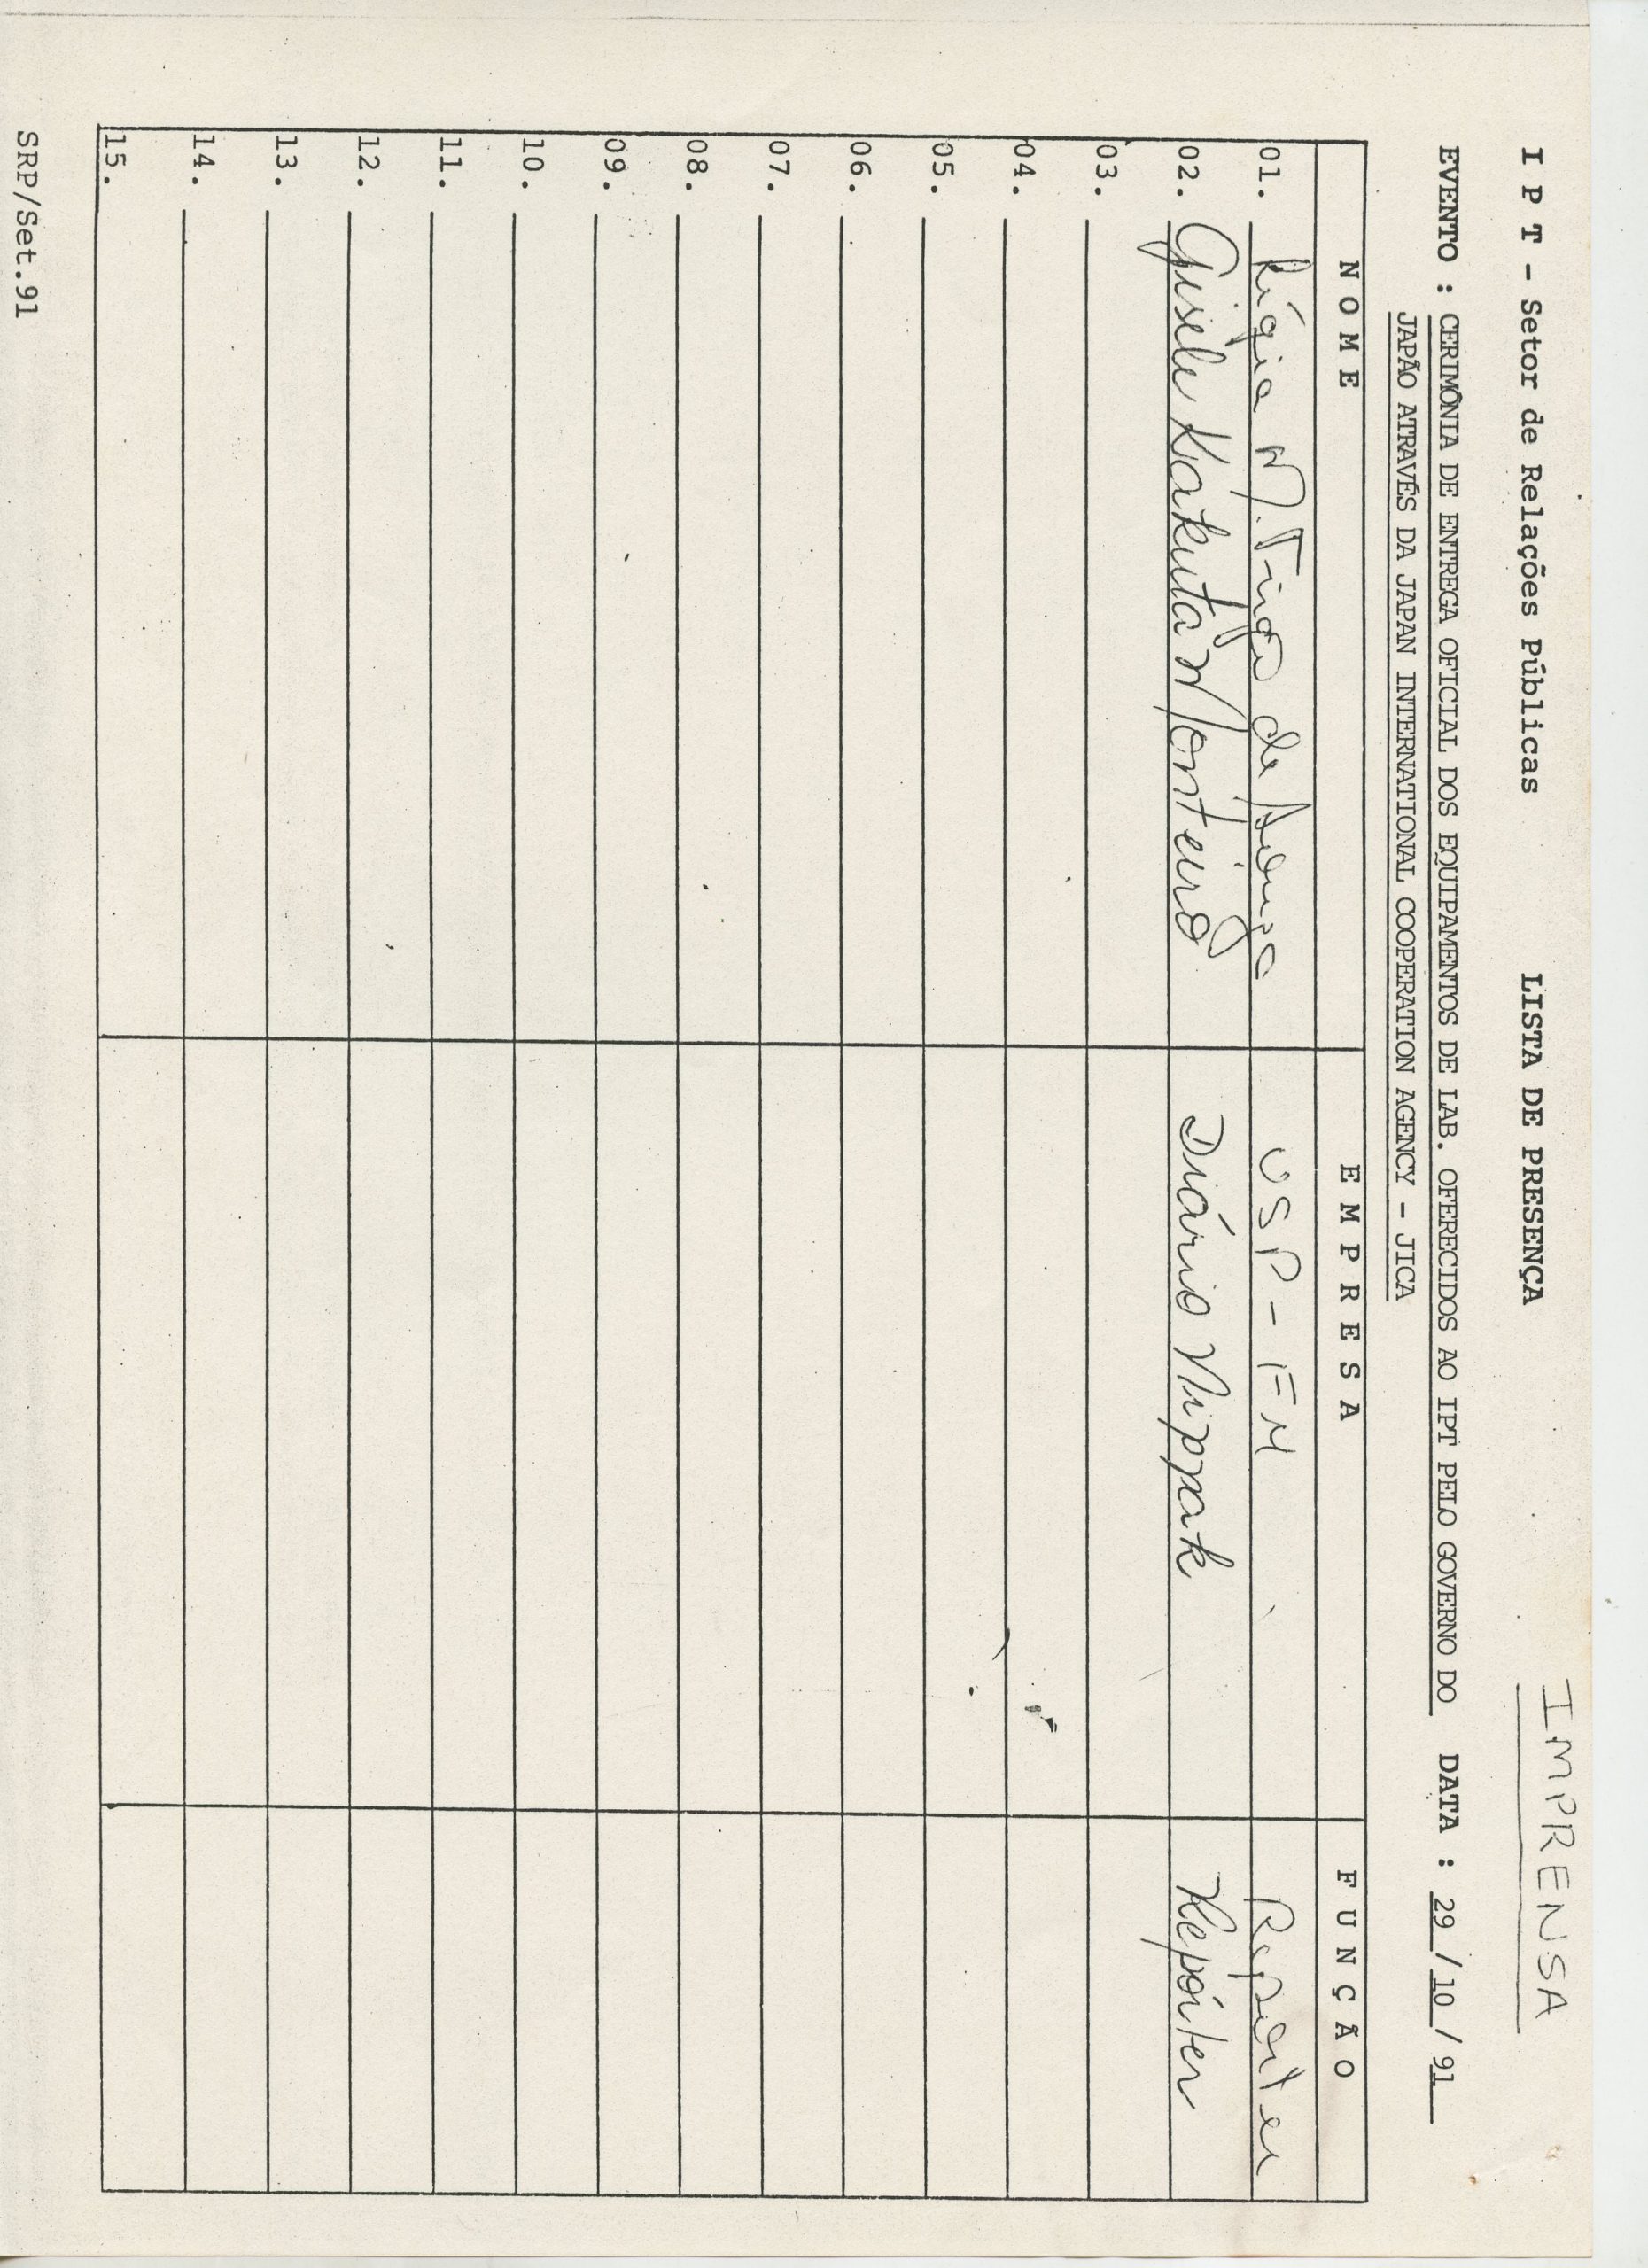 IMPRENSA
I P T - Setor de Relações Públicas LISTA DE PRESENÇA
EVENTO : CERIMÔNIA DE ENTREGA OFICIAL DOS EQUIPAMENTOS DE LAB. OFERECIDOS AO IPT PELO GOVERNO DO DATA : 29 / 10 / 91
JAPÃO ATRAVÉS DA JAPAN INTERNATIONAL COOPERATION AGENCY - JICA
N O M E E M P R E S A F U N Ç Ã O
01. M. de USP - FM Repórter
02. Gisele Kakuta Monteiro Diário Nippak Repórter
03.
04.
05.
06.
07.
08.
09.
10.
11.
12.
13.
14.
15.
SRP/Set.91